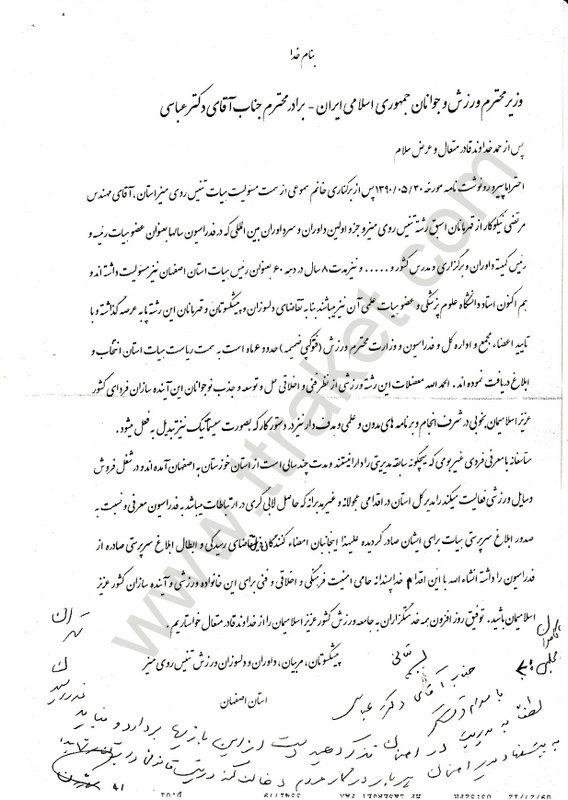 بنام خدا
وزیر محترم ورزش و جوانان جمهوری اسلامی ایران - برادر محترم جناب آقای دکتر عباسی
پس از حمد خداوند قادر متعال و عرض سلام
احتراما پیرو رونوشت نامه مورخه ۱۳۹۰/۰۵/۳۰ پس از برکناری خانم سموعی از سمت مسئولیت هیات تنیس روی میز استان، آقای مهندس
مرتضی نیکوکار از قهرمانان اسبق رشته تنیس روی میز و جزو اولین داوران و سرداوران بین المللی که در فدراسیون سالها بعنوان عضو هیات رئیسه و
رئیس کمیته داوران و برگزاری و مدرس کشور و ..... و نیز مدت ۸ سال در دهه ۶۰ بعنوان رئیس هیات استان اصفهان نیز مسئولیت داشته اند و
هم اکنون استاد دانشگاه علوم پزشکی و عضو هیات علمی آن نیز میباشند بنا به تقاضای دلسوزان و پیشکسوتان و قهرمانان این رشته پا به عرصه گذاشته و با
تایید اعضاء مجمع و اداره کل و فدراسیون و وزارت محترم ورزش (فتوکپی ضمیمه) حدود ۶ ماه است به سمت ریاست هیات استان انتخاب و
ابلاغ دریافت نموده اند. الحمد الله معضلات این رشته ورزشی از نظر فنی و اخلاقی حل و توسعه و جذب نوجوانان این آینده سازان فردای کشور
عزیز اسلامیمان بخوبی در شرف انجام و برنامه های مدون و علمی و هدف دار نیز در دستور کار که بصورت سیستماتیک نیز تبدیل به فعل میشود.
متاسفانه با معرفی فردی غیر بومی که هیچگونه سابقه مدیریتی را دارا نیستند و مدت چند سالی است از استان خوزستان به اصفهان آمده اند و در شغل فروش
وسایل ورزشی فعالیت میکنند را مدیر کل استان در اقدامی عجولانه و غیر مدبرانه که حاصل لابی گری در ارتباطات میباشد به فدراسیون معرفی و نسبت به
صدور ابلاغ سرپرستی هیات برای ایشان صادر گردیده علیهذا اینجانبان امضاء کنندگان تقاضای رسیدگی و ابطال ابلاغ سرپرستی صادره از
فدراسیون را داشته انشاء الله با این اقدام خداپسندانه حامی امنیت فرهنگی و اخلاقی و فنی برای این خانواده ورزشی و آینده سازان کشور عزیز
اسلامیمان باشید. توفیق روز افزون همه خدمتگزاران به جامعه ورزش کشور عزیز اسلامیمان را از خداوند قادر متعال خواستاریم.
پیشکسوتان، مربیان، داوران و دلسوزان ورزش تنیس روی میز
استان اصفهان
جناب آقای دکتر عباسی
با سلام و تشکر
لطفا به مدیریت در اصفهان تذکر دهید دست از این بازیها بردارد و نباید
www.ttraket.com